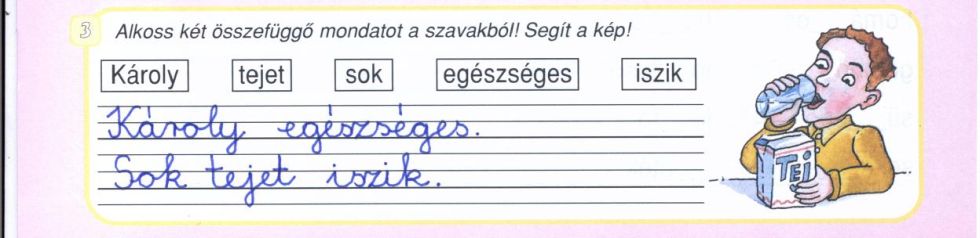 3 Alkoss két összefüggő mondatot a szavakból! Segít a kép!
Károly tejet sok egészséges iszik
Károly egészséges.
Sok tejet iszik.
TEJ